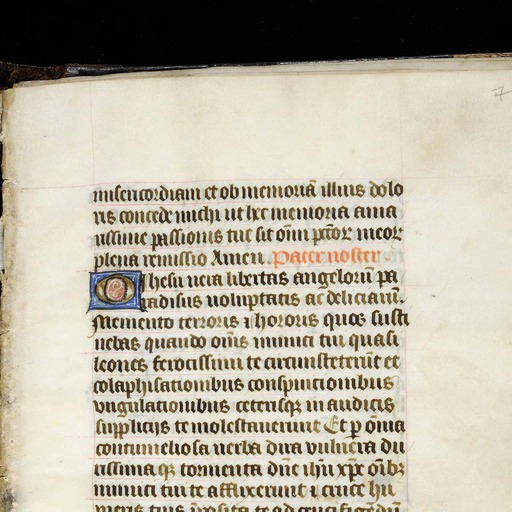 7
misericordiam et ob memoriā illius dolo
ris concede michi ut hec memoria ama
rissime passionis tue sit om̄i pctōꝝ meoꝝ
plena remissio Amen. Pater noster
O Jhesu vera libertas angeloꝝ pa
radisus uoluptatis ac deliciarū.
Memento terroris ⁊ horroris quos susti
nebas quando om̄s inimici tui quasi
leones ferocissimi te circumsteterūt et
colaphisationibus conspuitionibus
ungulationibus ceterisqꝫ inauditis
suppliciis te molestauerunt Et ꝑ om̄ia
contumeliosa uerba dira vulnera du
rissima qꝫ tormenta dn̄e ihū xp̄e om̄ibꝫ
inimici tui te affixerunt ī cruce hu